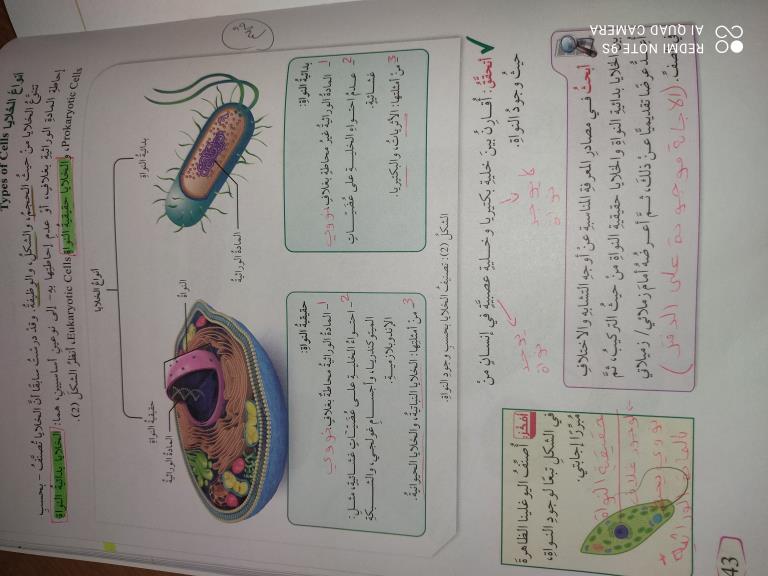 أنواعُ الخلايا Types of Cells
تتنوّعُ الخلايا من حيثُ الحجمِ، والشكلِ، والوظيفةِ. وقد درستُ سابقًا أنَّ الخلايا تُصنَّفُ - بحسبِ
إحاطةِ المادةِ الوراثيةِ بغلافٍ، أو عدمِ إحاطتِها بهِ - إلى نوعينِ أساسيينِ، هما: الخلايا بدائيةُ النواةِ
Prokaryotic Cells، والخلايا حقيقيةُ النواةِ Eukaryotic Cells، أنظرُ الشكلَ (2).
أنواعُ الخلايا
بدائيةُ النواةِ
حقيقيةُ النواةِ
المادةُ الوراثيةُ
النواةُ
المادةُ الوراثيةُ
بدائيةُ النواةِ:
1 المادةُ الوراثيةُ غيرُ محاطةٍ بغلافٍ نووي
2 عدمُ احتواءِ الخليةِ على عُضيّاتٍ
غشائيةٍ.
3 منْ أمثلتِها: الأثرياتُ، والبكتيريا.
حقيقيةُ النواةِ:
1 - المادةُ الوراثيةُ محاطةٌ بغلافٍ نووي
2 - احتواءُ الخليةِ على عُضيّاتٍ غشائيةٍ، مثلِ:
الميتوكندريا، وأجسامِ غولجي، والشبكةِ
الإندوبلازميةِ.
3 منْ أمثلتِها: الخلايا النباتيةُ، والخلايا الحيوانيةُ.
الشكلُ (2): تصنيفُ الخلايا بحسبِ وجودِ النواةِ.
✓ أتحقّقُ: أُقارنُ بينَ خليةِ بكتيريا وخليةٍ عصبيةٍ في إنسانٍ منْ
حيثُ وجودُ النواةِ.
لا يوجد
نواة
يوجد
نواة
أبحثُ في مصادرِ المعرفةِ المناسبةِ عنْ أوجهِ التشابهِ والاختلافِ
بينَ الخلايا بدائيةِ النواةِ والخلايا حقيقيةِ النواةِ منْ حيثُ التركيبُ، ثمَّ
أُعدُّ عرضًا تقديميًّا عنْ ذلكَ، ثمَّ أعرضُهُ أمامَ زملائي/ زميلاتي
في الصفِّ. (الاجابة موجودة على الدفتر)
أفكّرُ: أُصنّفُ اليوغلينا الظاهرةَ
في الشكلِ تبعًا لوجودِ النواةِ،
مبرّرًا إجابتي.
حقيقية النواة
43
REDMI NOTE 9S
AI QUAD CAMERA